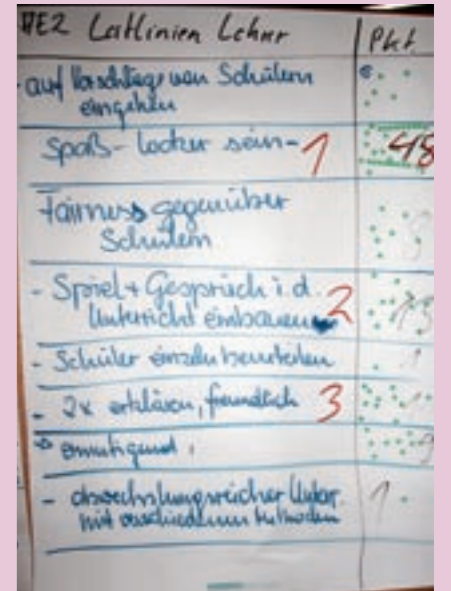 HE2 Leitlinien Lehrer Pkt.
- auf Vorschläge von Schülern
eingehen
Spaß - locker sein - 1 48
Fairness gegenüber
Schülern
- Spiel + Gespräch i. d. 2
Unterricht einbauen
- Schüler einzeln beurteilen 1
- 2x erklären, freundlich 3
ermutigend 9
- abwechslungsreicher Unter. 1
mit verschiedenen Methoden